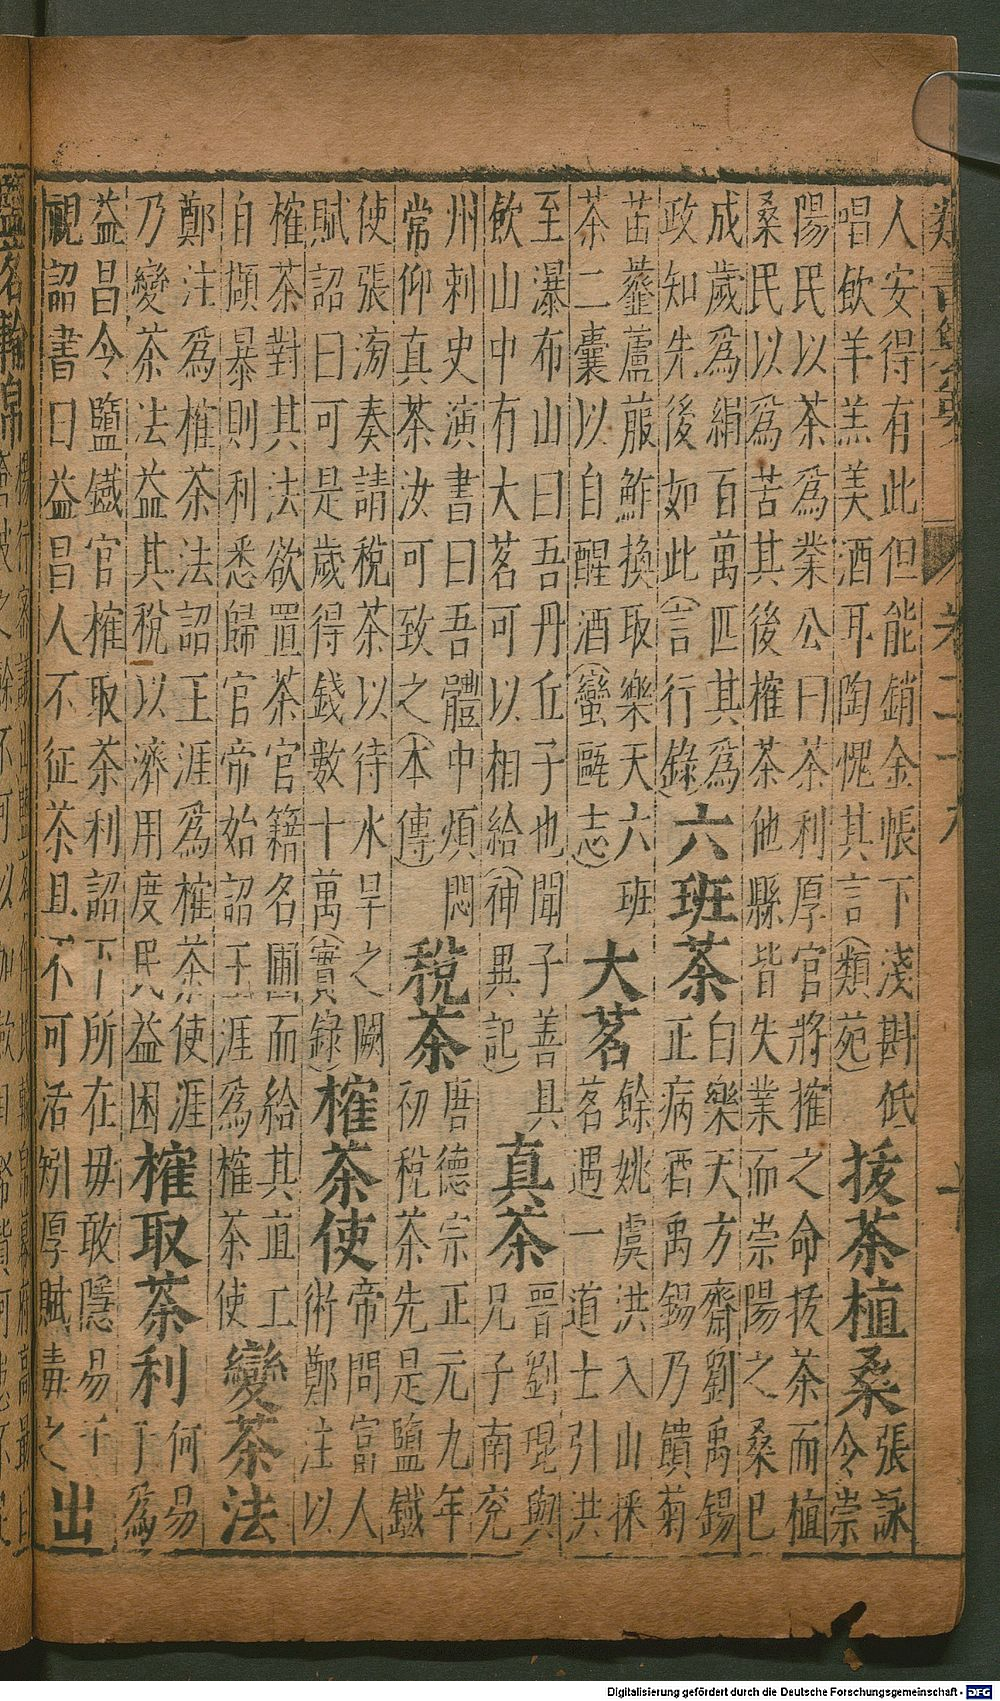 卷二十九
人安得有此但能銷金帳下淺斟低
唱飲羊羔美酒耳陶愧其言(類苑)
拔茶植桑
張詠
令崇
陽民以茶為業公曰茶利厚官將搉之命拔茶而植
桑民以為苦其後榷茶他縣皆失業而崇陽之桑已
成歲為絹百萬匹其為
政知先後如此(言行錄)
六班茶
白樂天方齋劉禹錫
正病酒禹錫乃饋菊
苖虀蘆菔鮓換取樂天六班
茶二囊以自醒酒(蠻甌志)
大茗
餘姚虞洪入山採
茗遇一道士引洪
至瀑布山曰吾丹丘子也聞子善具
飲山中有大茗可以相給(神異記)
真茶
晉劉琨與
兄子南兖
州刺史演書曰吾體中煩悶
常仰真茶汝可致之(本傳)
稅茶
唐德宗正元九年
初稅茶先是鹽鐵
使張滂奏請稅茶以待水旱之闕
賦詔曰可是歲得錢數十萬(實錄)
榷茶使
帝問富人
術鄭注以
榷茶對其法欲置茶官籍名圃而給其直工
自擷暴則利悉歸官帝始詔王涯為榷茶使
變茶法
鄭注為榷茶法詔王涯為榷茶使涯
乃變茶法益其稅以濟用度民益困
榷取茶利
何易
于為
益昌令鹽鐵官榷取茶利詔下所在毋敢隱易于
視詔書曰益昌人不征茶且不可活矧厚賦毒之
出
Digitalisierung gefördert durch die Deutsche Forschungsgemeinschaft - DFG